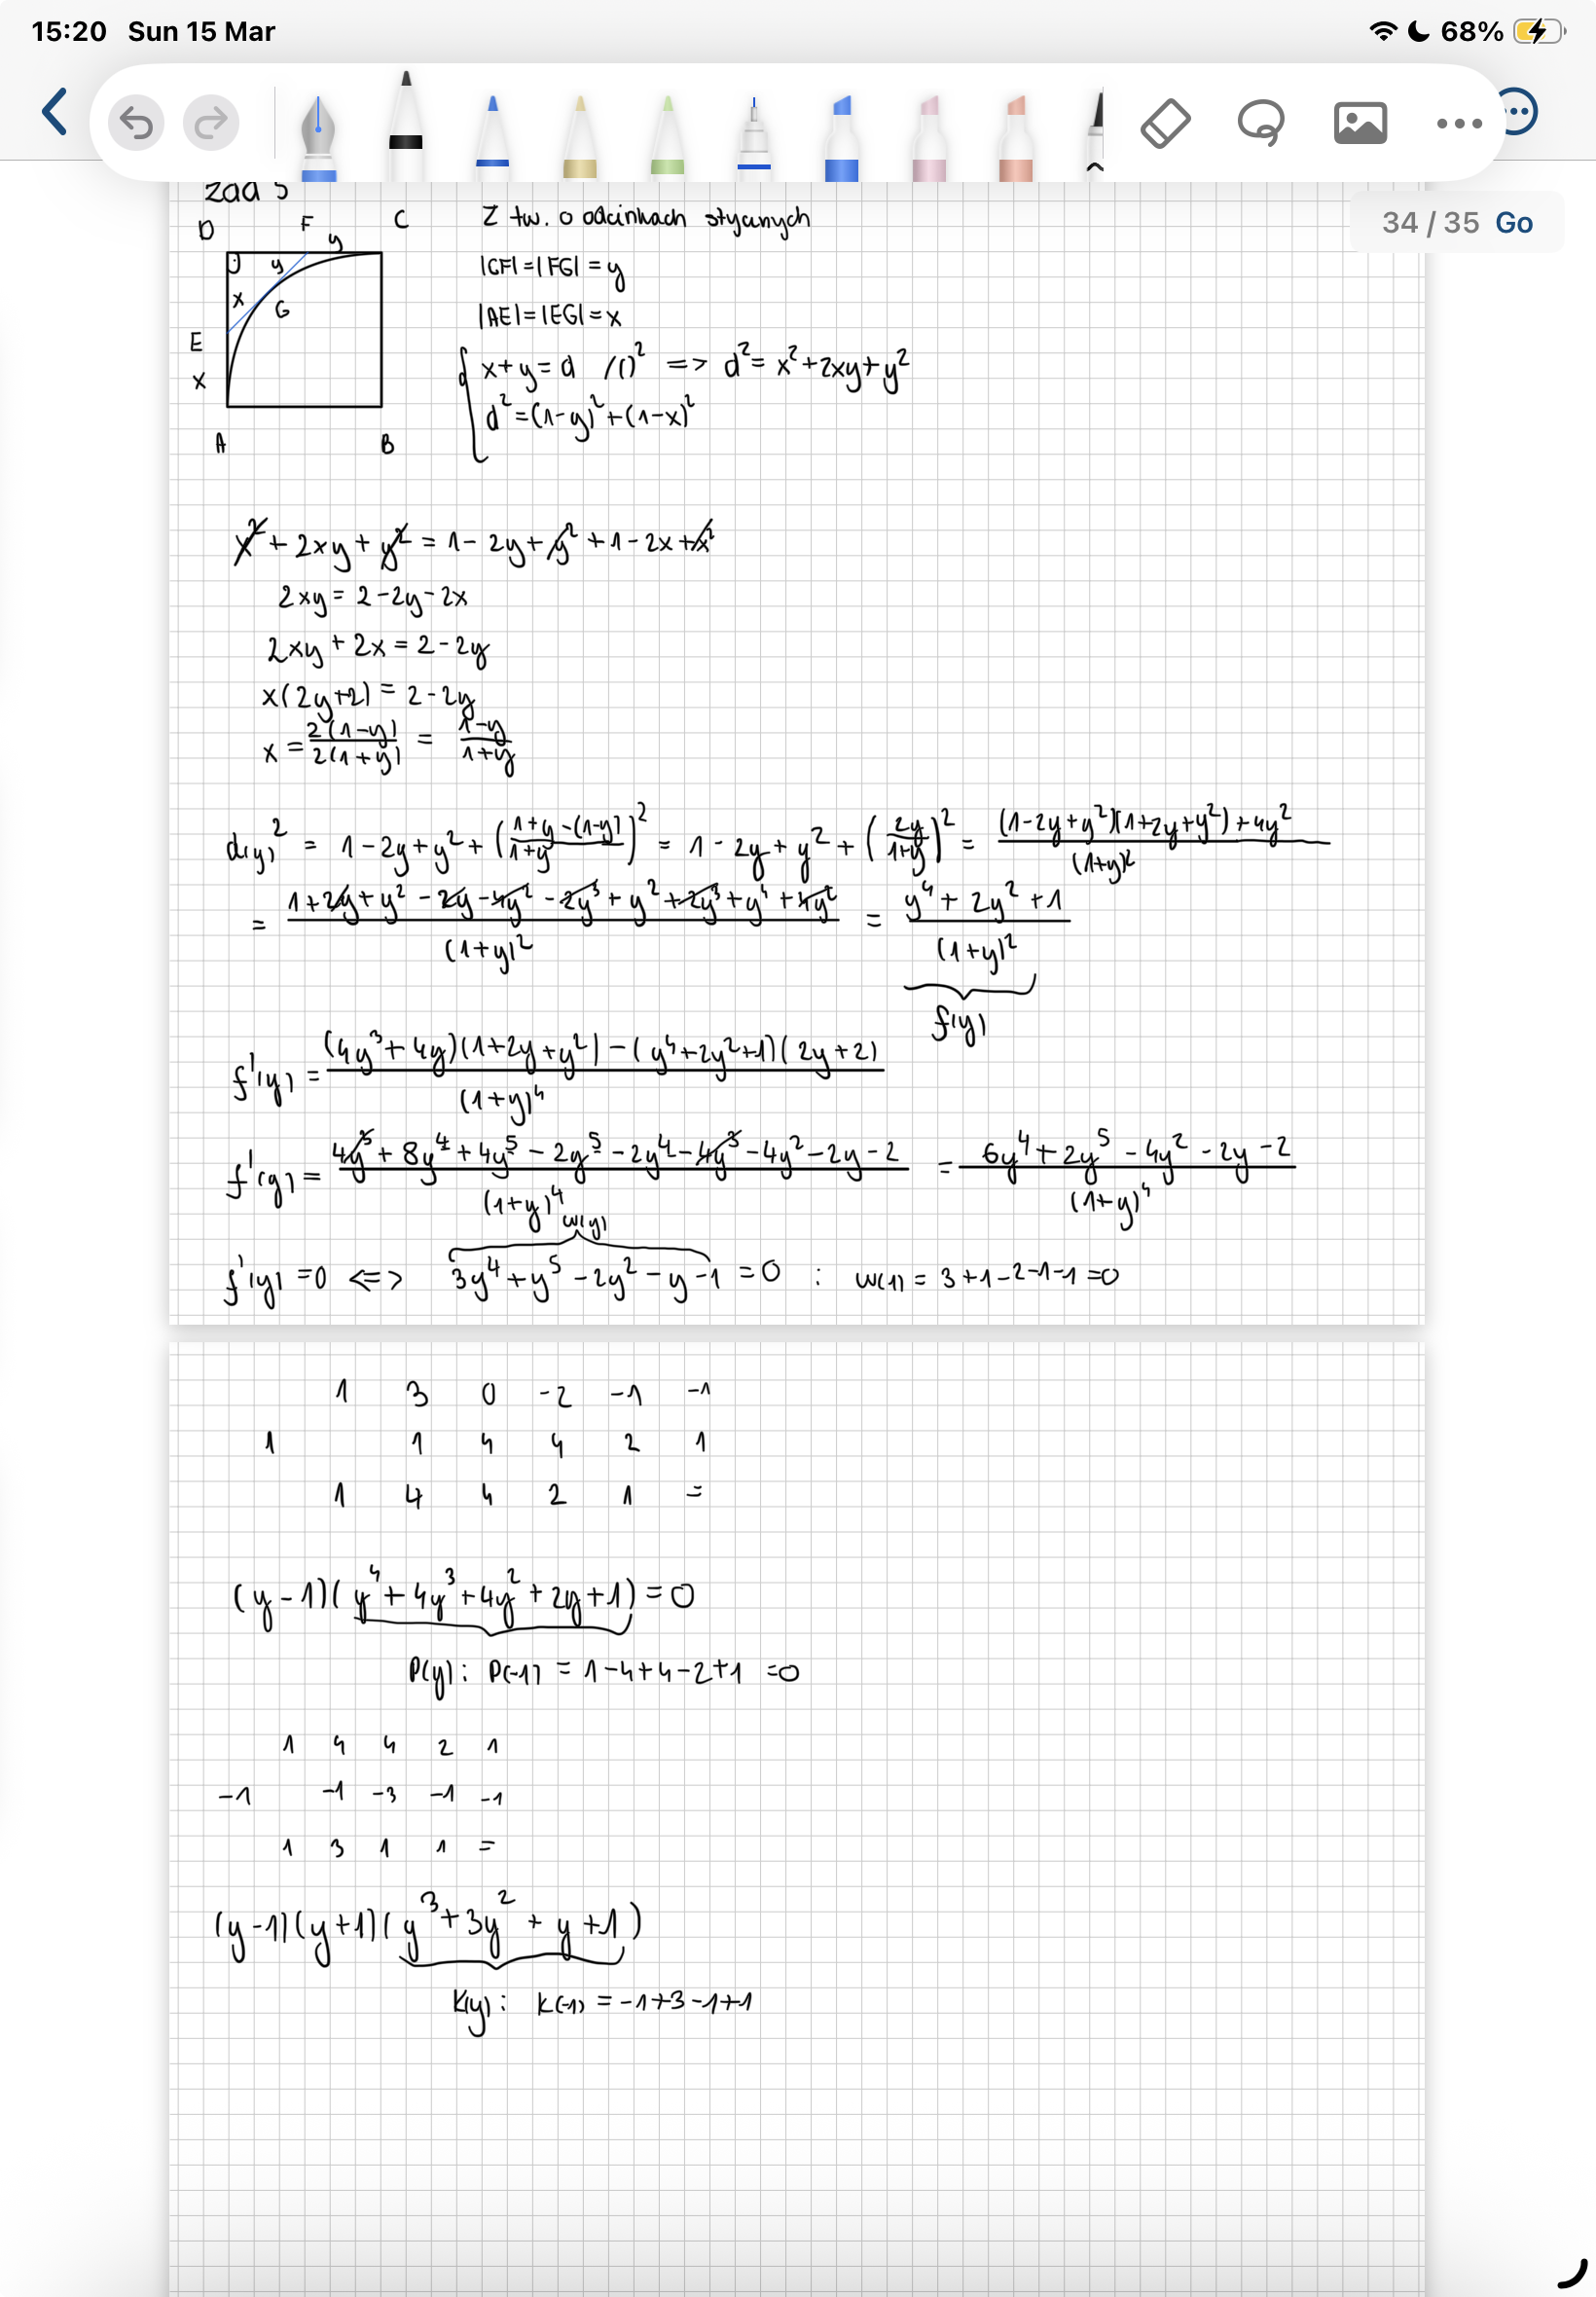 15:20 Sun 15 Mar
68%
34 / 35 Go
zad 5
D F C
y
y
x
G
E
x
A B
Z tw. o odcinkach stycznych
|CF| = |FG| = y
|AE| = |EG| = x
x + y = d /()² => d² = x² + 2xy + y²
d² = (1-y)² + (1-x)²
x² + 2xy + y² = 1 - 2y + y² + 1 - 2x + x²
2xy = 2 - 2y - 2x
2xy + 2x = 2 - 2y
x(2y+2) = 2 - 2y
x = 2(1-y)/2(1+y) = 1-y/1+y
d(y)² = 1 - 2y + y² + (1+y-(1-y)/1+y)² = 1 - 2y + y² + (2y/1+y)² = (1-2y+y²)(1+2y+y²) + 4y²/(1+y)²
= 1 + 2y + y² - 2y - 4y² - 2y³ + y² + 2y³ + y⁴ + 4y²/(1+y)² = y⁴ + 2y² + 1/(1+y)²
f(y)
f'(y) = (4y³ + 4y)(1+2y+y²) - (y⁴+2y²+1)(2y+2)/(1+y)⁴
f'(y) = 4y³ + 8y⁴ + 4y⁵ - 2y⁵ - 2y⁴ - 4y³ - 4y² - 2y - 2/(1+y)⁴ = 6y⁴ + 2y⁵ - 4y² - 2y - 2/(1+y)⁴
w(y)
f'(y) = 0 <=> 3y⁴ + y⁵ - 2y² - y - 1 = 0 : w(1) = 3+1-2-1-1 = 0
1 3 0 -2 -1 -1
1 1 4 4 2 1
1 4 4 2 1 =
(y-1)(y⁴ + 4y³ + 4y² + 2y + 1) = 0
P(y): P(-1) = 1-4+4-2+1 = 0
1 4 4 2 1
-1 -1 -3 -1 -1
1 3 1 1 =
(y-1)(y+1)(y³ + 3y² + y + 1)
K(y): K(-1) = -1+3-1+1